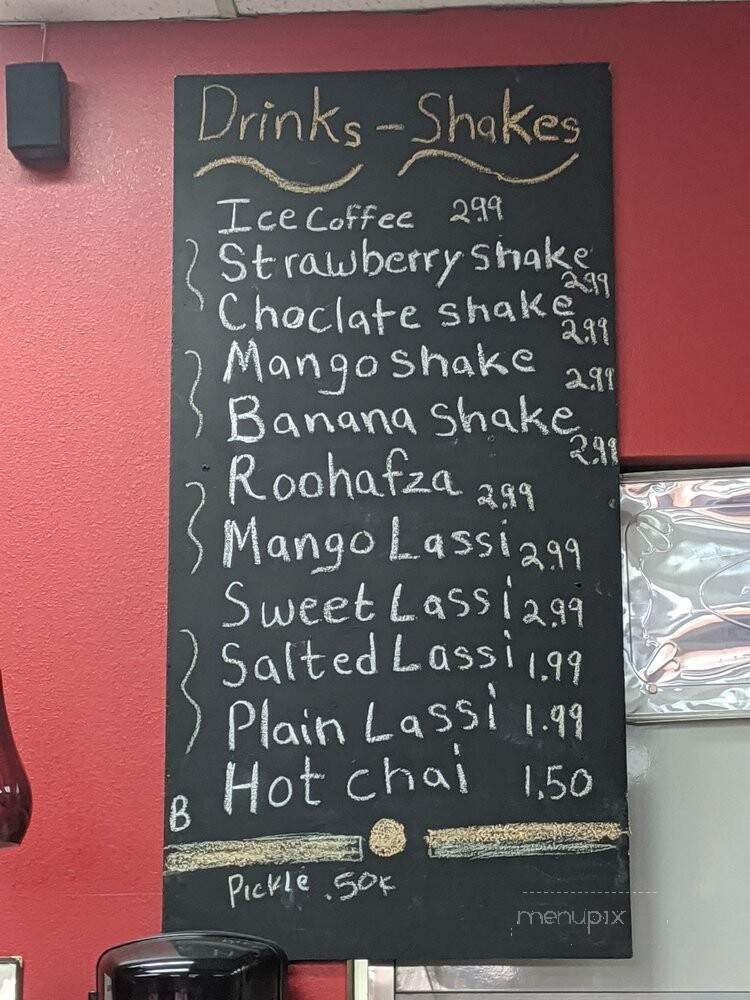 Drinks - Shakes
Ice Coffee 2.99
Strawberry shake 2.99
Choclate shake 2.99
Mango shake 2.99
Banana shake 2.99
Roohafza 2.99
Mango Lassi 2.99
Sweet Lassi 2.99
Salted Lassi 1.99
Plain Lassi 1.99
Hot chai 1.50
B
Pickle .50¢
menupix